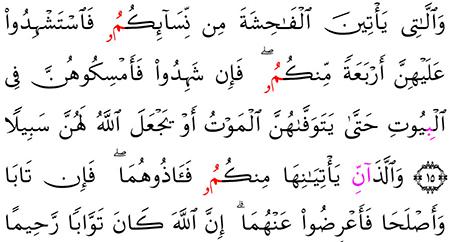 وَٱلَّٰتِى يَأْتِينَ ٱلْفَٰحِشَةَ مِن نِّسَآئِكُمُۥ فَٱسْتَشْهِدُوا۟
عَلَيْهِنَّ أَرْبَعَةً مِّنكُمُۥ ۖ فَإِن شَهِدُوا۟ فَأَمْسِكُوهُنَّ فِى
ٱلْبِيُوتِ حَتَّىٰ يَتَوَفَّىٰهُنَّ ٱلْمَوْتُ أَوْ يَجْعَلَ ٱللَّهُ لَهُنَّ سَبِيلًا
۝١٥ وَٱلَّذَآنِّ يَأْتِيَٰنِهَا مِنكُمُۥ فَـَٔاذُوهُمَا ۖ فَإِن تَابَا
وَأَصْلَحَا فَأَعْرِضُوا۟ عَنْهُمَا ۗ إِنَّ ٱللَّهَ كَانَ تَوَّابًا رَّحِيمًا